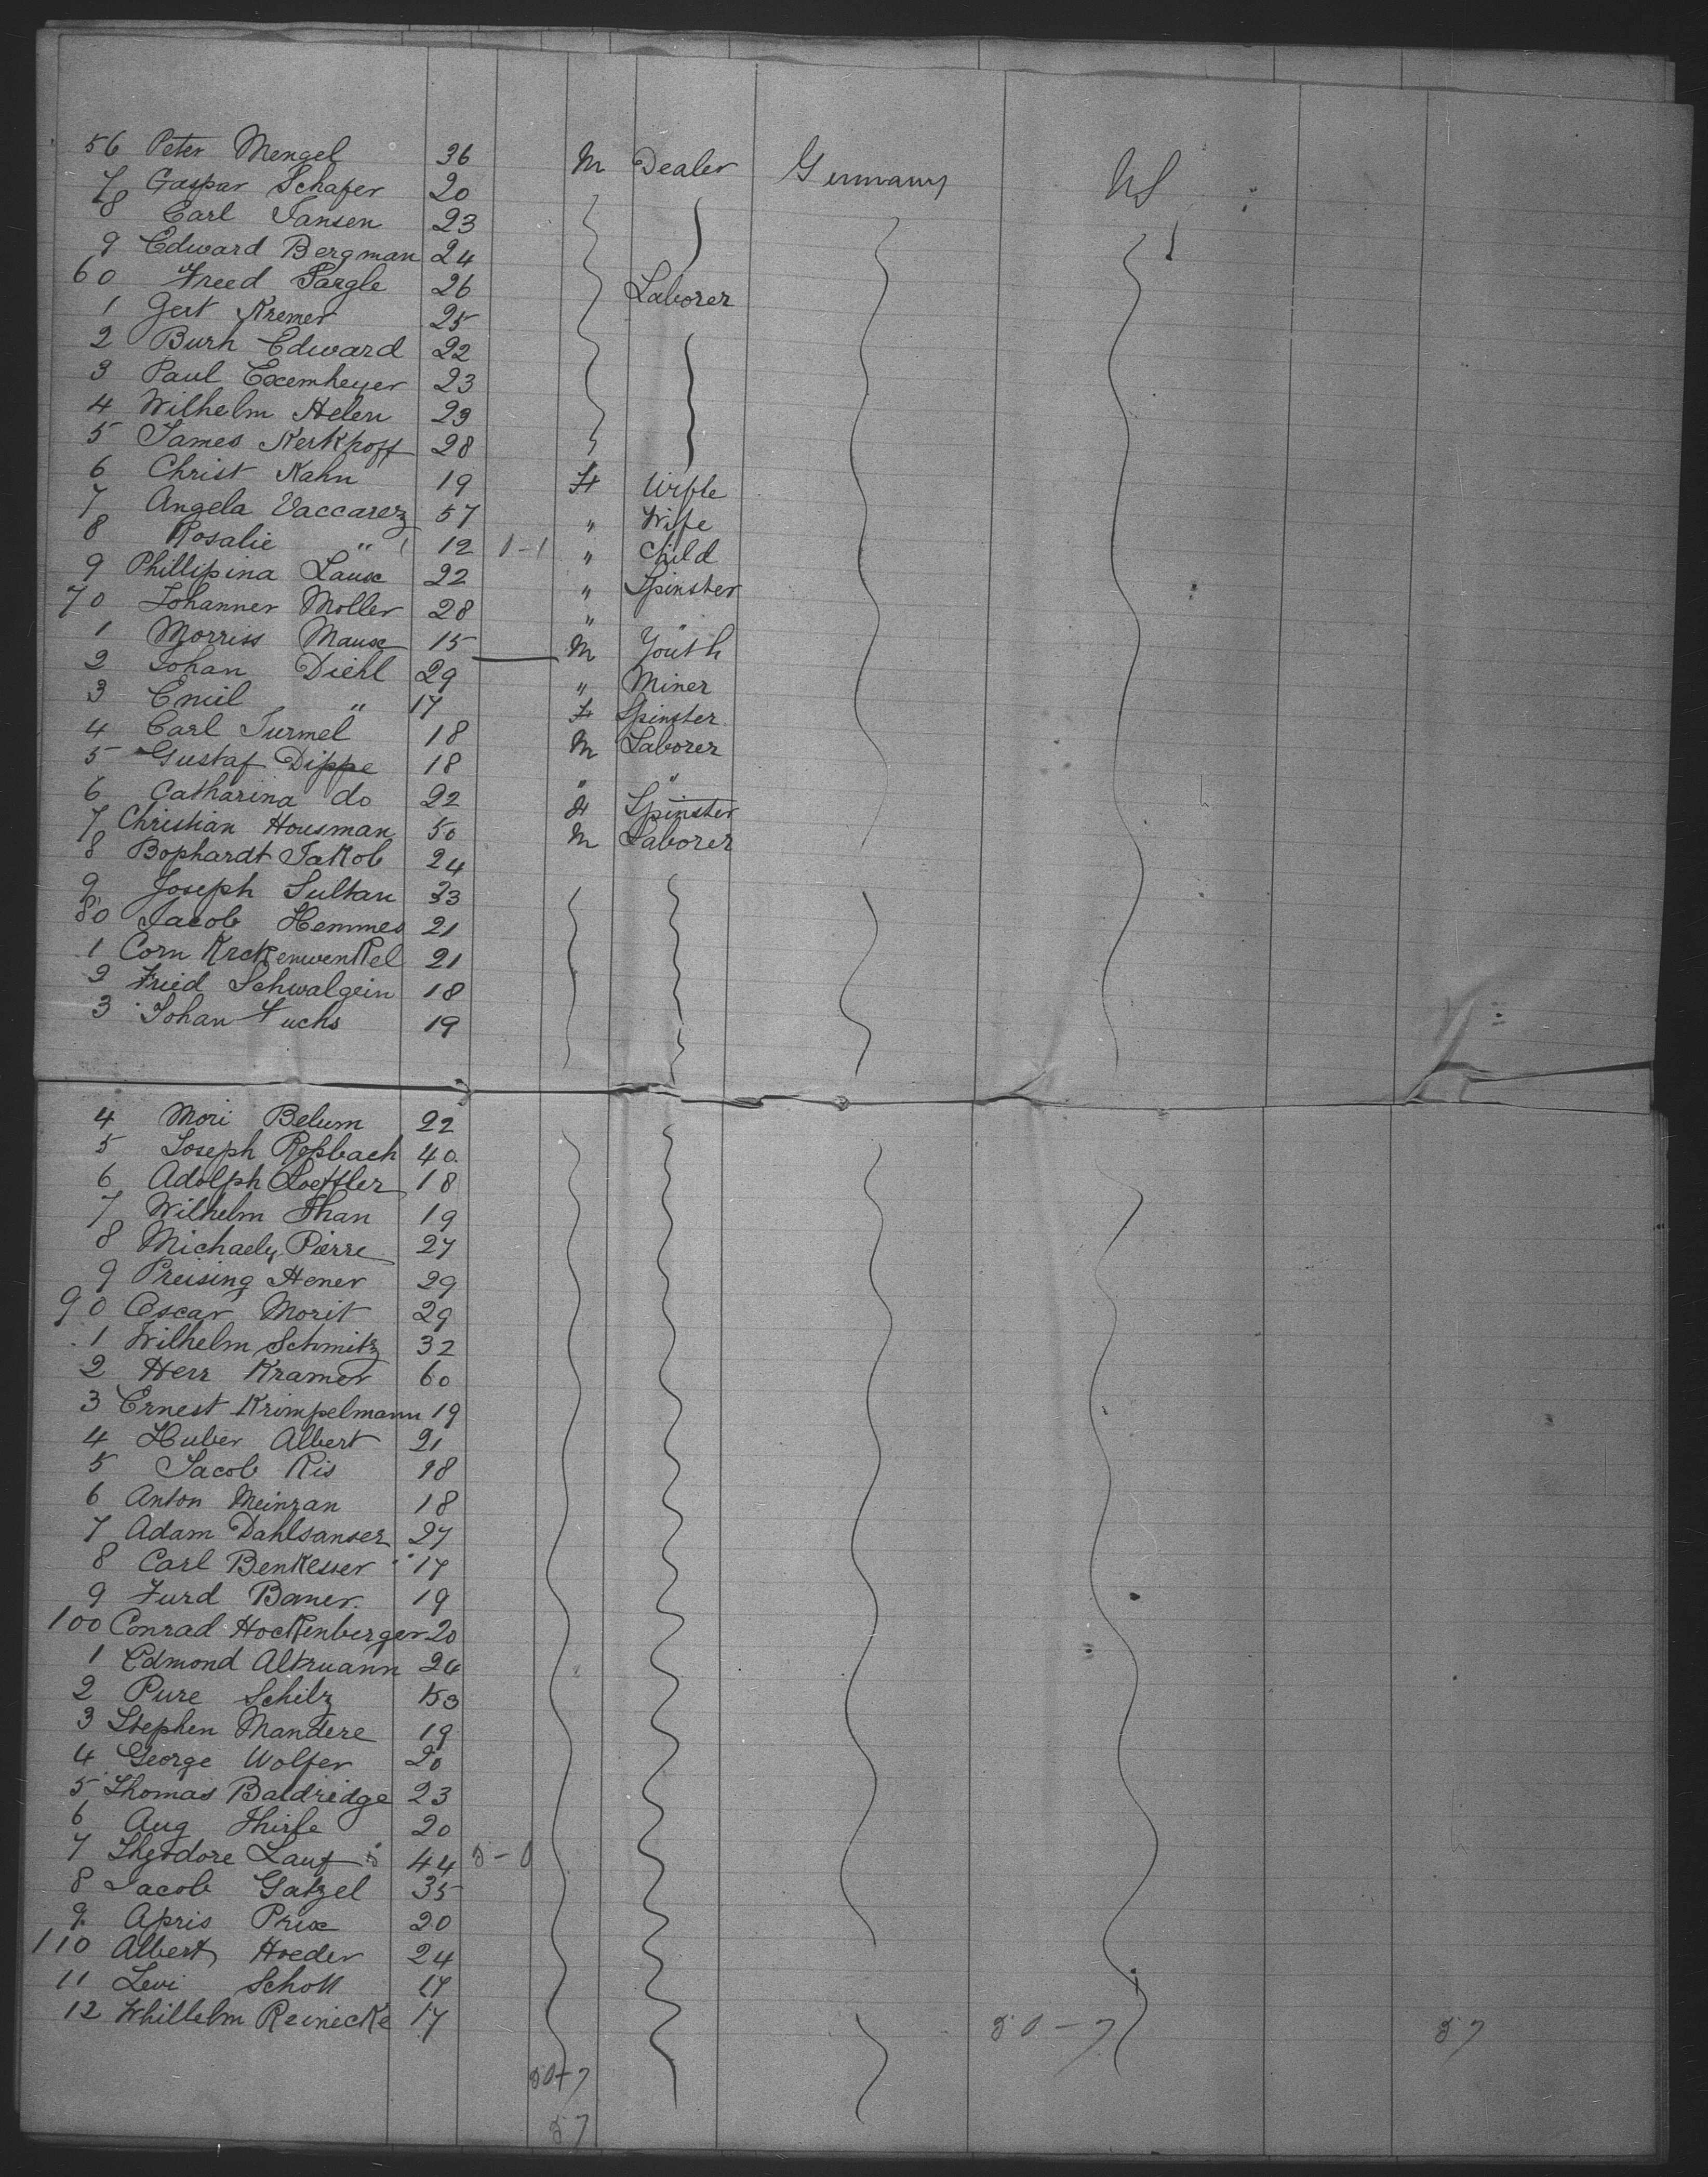 56 Peter Mengel 36 M Dealer Germany US
7 Gaspar Schafer 20
8 Carl Jansen 23
9 Edward Bergman 24
60 Freed Pargle 26 Laborer
1 Gert Kremer 25
2 Burh Edward 22
3 Paul Exemheyer 23
4 Wilhelm Helen 29
5 James Kerkhoff 28
6 Christ Kahn 19 F Wife
7 Angela Vaccarez 57 " Wife
8 Rosalie " 12 1-1 " Child
9 Phillipina Laux 22 " Spinster
70 Johanner Moller 28 " "
1 Morriss Maux 15 M Youth
2 Johan Diehl 29 " Miner
3 Emil " 17 F Spinster
4 Carl Turmel 18 M Laborer
5 Gustaf Dippe 18 " "
6 Catharina do 22 F Spinster
7 Christian Housman 50 M Laborer
8 Bophardt Jakob 24
9 Joseph Sultan 33
80 Jacob Hemmes 21
1 Corn Krckenwenkel 21
2 Fried Schwalgein 18
3 Johan Fuchs 19
4 Mori Belum 22
5 Joseph Roßbach 40
6 Adolph Loeffler 18
7 Wilhelm Than 19
8 Michaely Pierre 27
9 Preising Hener 29
90 Oscar Morit 29
1 Wilhelm Schmitz 32
2 Herr Kramer 60
3 Ernest Krimpelmann 19
4 Huber Albert 21
5 Jacob Ris 18
6 Anton Meinzan 18
7 Adam Dahlsanser 27
8 Carl Benkesser 17
9 Furd Bomer 19
100 Conrad Hockenberger 20
1 Edmond Altruann 24
2 Pure Schilz
3 Stephen Mandere 19
4 George Wolfer 20
5 Thomas Baldridge 23
6 Aug Thirfe 20
7 Theodore Lauf 44
8 Jacob Gatzel 35
9 Apris Prix 20
110 Albert Hoeder 24
11 Levi Schott 17
12 Whillelm Reinecke 17 50-7 57
50+7
57